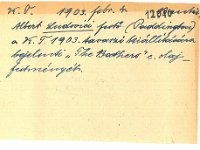 K. V. 1903. febr. 4.
Albert Ludovici festő (Paddington)
a K. T. 1903. tavaszi kiállitására
bejelenti "The Bathers" c. olaj-
festményét.